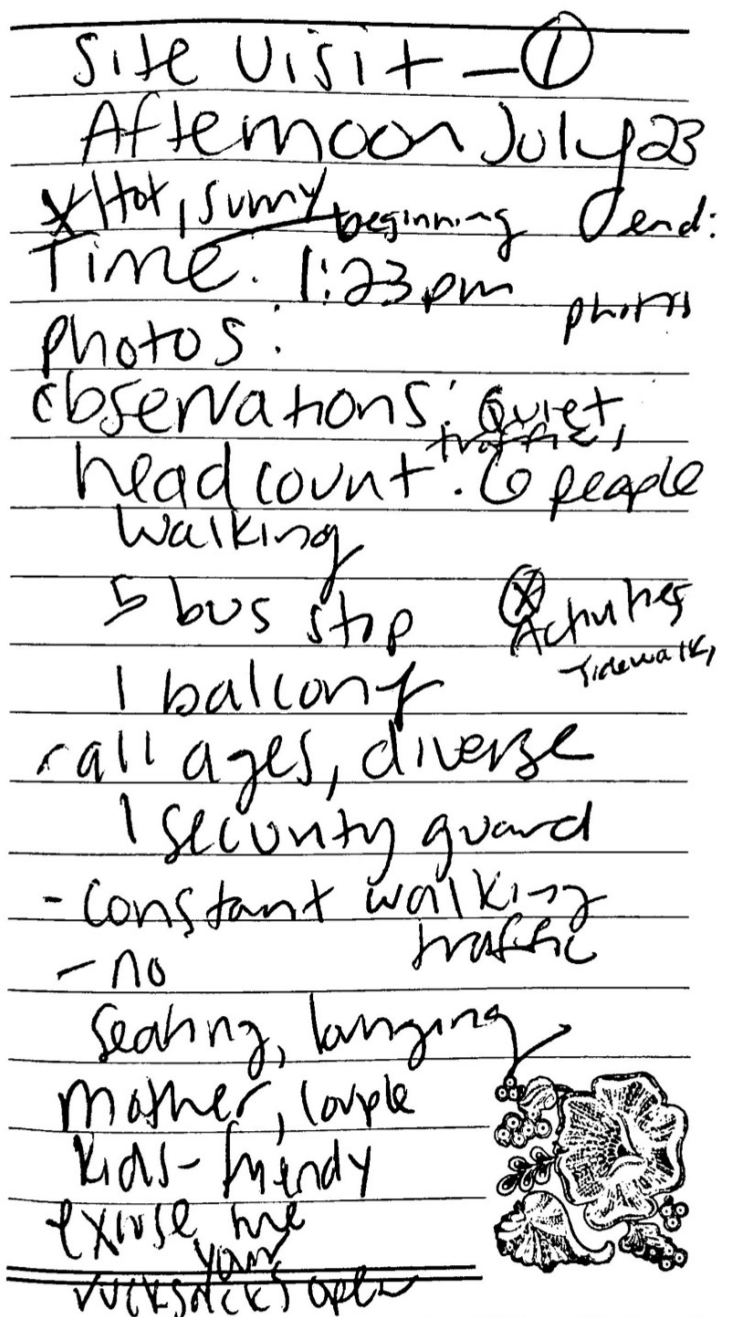 Site Visit - ①
Afternoon July 23
* Hot, sunny
beginning end:
Time: 1:23pm
photos
photos:
Observations: Quiet,
traffic,
headcount: 6 people
walking
5 bus stop
ⓧ Activities
sidewalk,
1 balcony
- all ages, diverse
1 security guard
- constant walking
traffic
- no
seating, lounging
mother, couple
kids - friendly
excuse me
your
rucksacks open